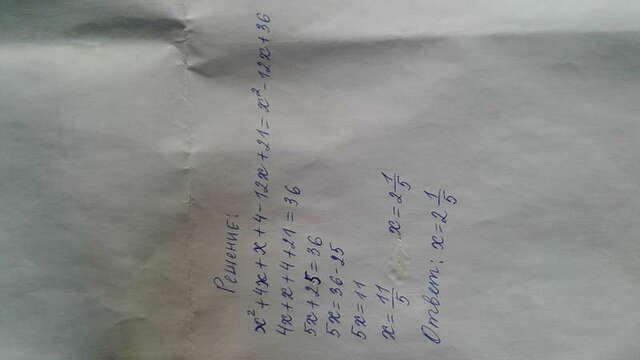 Решение:
x²+4x+x+4-12x+21=x²-12x+36
4x+x+4+21=36
5x+25=36
5x=36-25
5x=11
x=11/5 x=2 1/5
Ответ: x=2 1/5